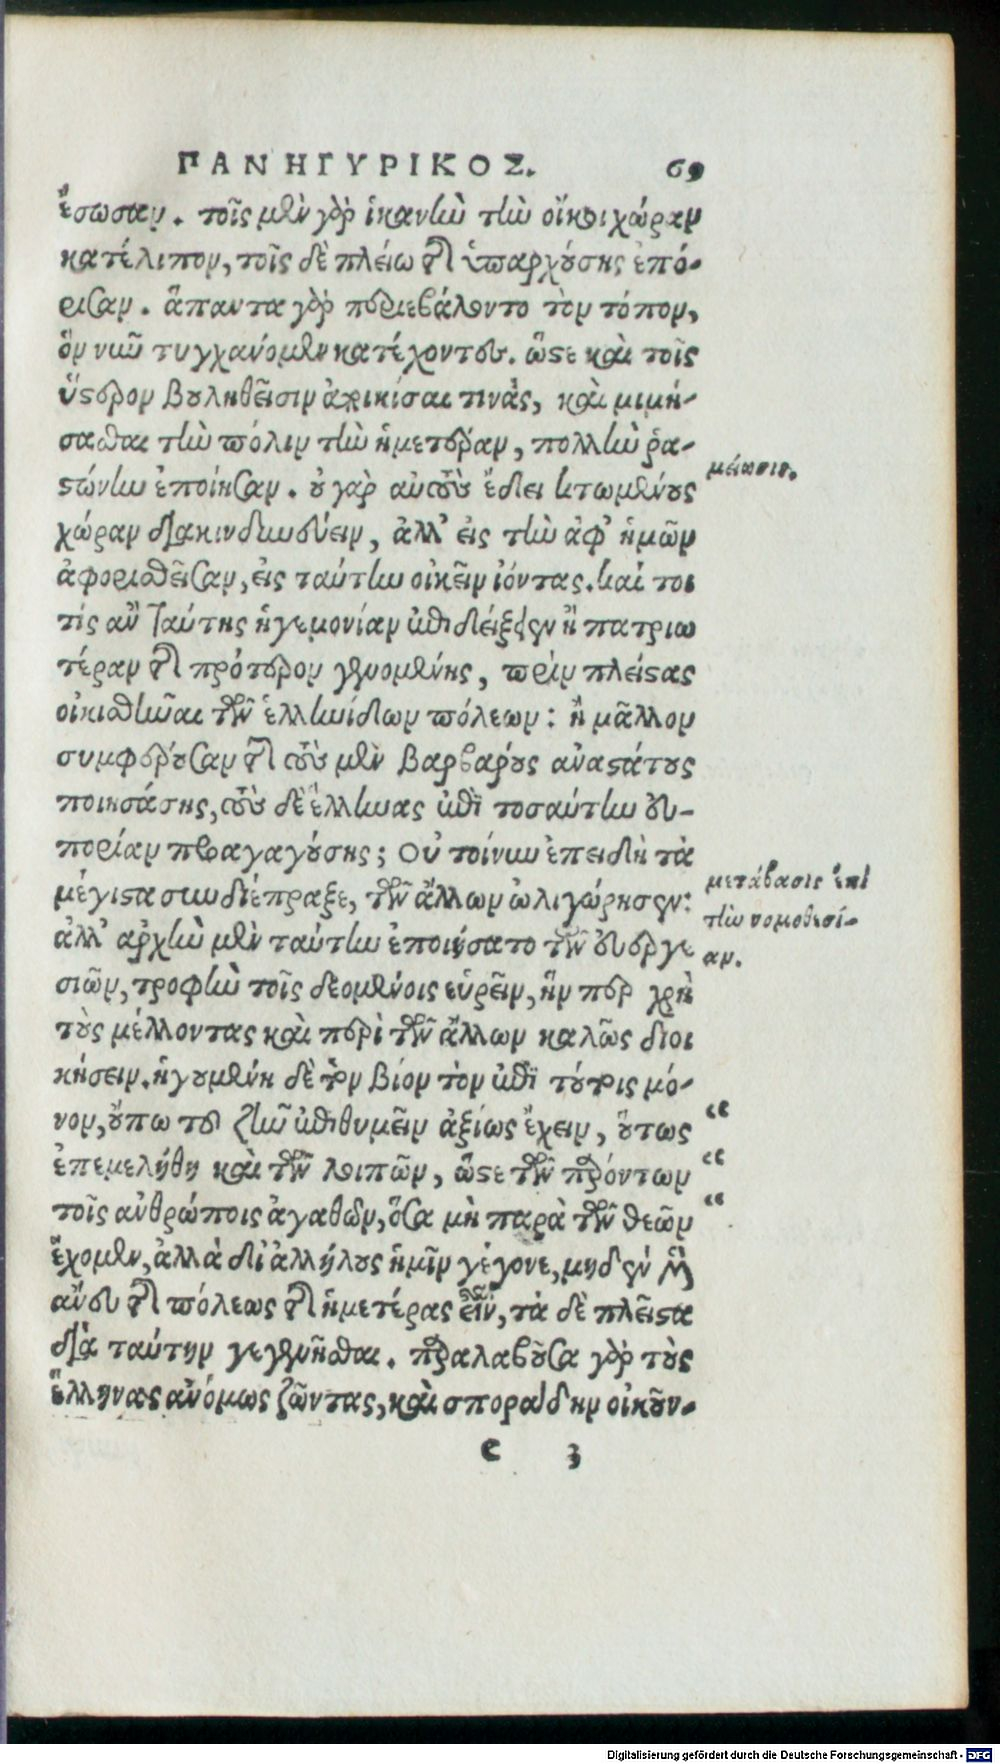 ΠΑΝΗΓΥΡΙΚΟΣ. 69
ἔσωσαν. τοῖς μὲν γὰρ ἱκανὴν τὴν οἴκοι χώραν
κατέλιπον, τοῖς δὲ πλείω τῆς ὑπαρχούσης ἐπό-
ρισαν. ἅπαντα γὰρ περιεβάλοντο τὸν τόπον,
ὃν νῦν τυγχάνομεν κατέχοντες. ὥστε καὶ τοῖς
ὕστερον βουληθεῖσιν ἀποικίσαι τινὰς, καὶ μιμή-
σασθαι τὴν πόλιν τὴν ἡμετέραν, πολλὴν ῥα-
στώνην ἐποίησαν. οὐ γὰρ αὐτοὺς ἔδει κτωμένους
μείωσις.
χώραν διακινδυνεύειν, ἀλλ' εἰς τὴν ἀφ' ἡμῶν
ἀφορισθεῖσαν, εἰς ταύτην οἰκεῖν ἰόντας. καί τοι
τίς ἂν ταύτης ἡγεμονίαν ἐπιδείξειεν ἢ πατριω
τέραν τῆς πρότερον γενομένης, πρὶν πλείστας
οἰκισθῆναι τῶν ἑλληνίδων πόλεων: ἢ μᾶλλον
συμφέρουσαν τῆς τοὺς μὲν βαρβάρους ἀναστάτους
ποιησάσης, τοὺς δὲ ἕλληνας ἐπὶ τοσαύτην εὐ-
πορίαν προαγαγούσης; Οὐ τοίνυν ἐπειδὴ τὰ
μέγιστα συνδιέπραξε, τῶν ἄλλων ὠλιγώρησεν:
μετάβασις ἐπὶ
ἀλλ' ἀρχὴν μὲν ταύτην ἐποιήσατο τῶν εὐεργε
τὴν νομοθεσί-
σιῶν, τροφὴν τοῖς δεομένοις εὑρεῖν, ἥν περ χρὴ
αν.
τοὺς μέλλοντας καὶ περὶ τῶν ἄλλων καλῶς διοι
κήσειν. ἡγουμένη δὲ τὸν βίον τὸν ἐπὶ τούτοις μό-
νον, οὔπω τοῦ ζῆν ἐπιθυμεῖν ἀξίως ἔχειν, οὕτως “
ἐπεμελήθη καὶ τῶν λοιπῶν, ὥστε τῶν παρόντων “
τοῖς ἀνθρώποις ἀγαθῶν, ὅσα μὴ παρὰ τῶν θεῶν “
ἔχομεν, ἀλλὰ δι' ἀλλήλους ἡμῖν γέγονε, μηδὲν μὲν
ἄνευ τῆς πόλεως τῆς ἡμετέρας εἶναι, τὰ δὲ πλεῖστα
διὰ ταύτην γεγενῆσθαι. παραλαβοῦσα γὰρ τοὺς
ἕλληνας ἀνόμως ζῶντας, καὶ σποράδην οἰκοῦν-
e 3
Digitalisierung gefördert durch die Deutsche Forschungsgemeinschaft - DFG